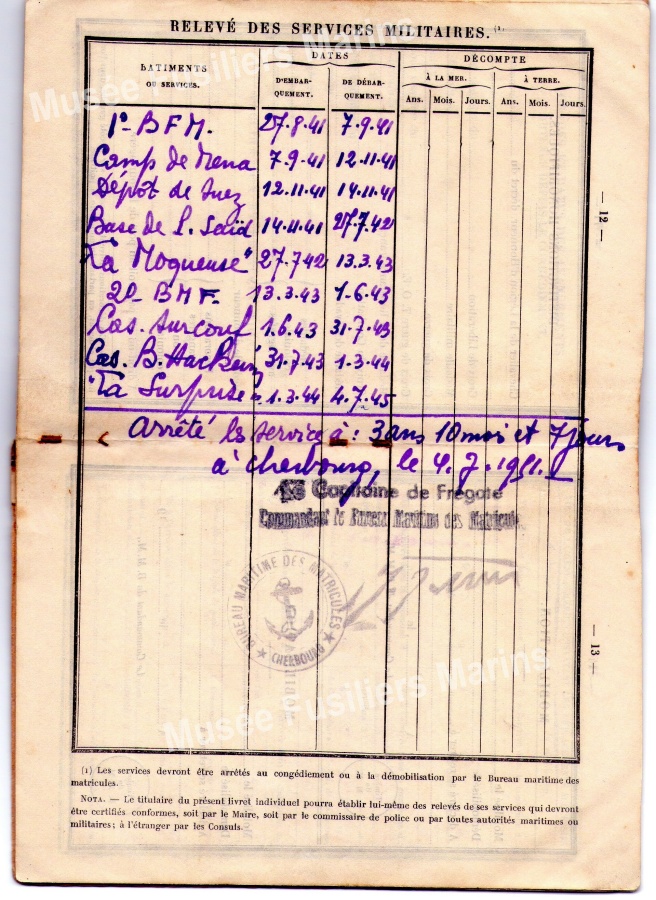 RELEVÉ DES SERVICES MILITAIRES. (1)
BATIMENTS OU SERVICES.
DATES
D'EMBAR-QUEMENT.
DE DÉBAR-QUEMENT.
DÉCOMPTE
À LA MER.
À TERRE.
Ans. Mois. Jours. Ans. Mois. Jours.
1er B F M. 27.8.41 7.9.41
Camp de Mena 7.9.41 12.11.41
Dépôt de Suez 12.11.41 14.11.41
Base de P. Saïd 14.11.41 27.7.42
"La Moqueuse" 27.7.42 13.3.43
2e B M F. 13.3.43 1.6.43
Cas. Surcouf 1.6.43 31.7.43
Cas. B. Hacheim 31.7.43 1.3.44
"La Surprise" 1.3.44 4.7.45
Arrêté les services à : 3 ans 10 mois et 7 jours
à Cherbourg, le 4.7.1951.
Le Capitaine de Frégate
Commandant le Bureau Maritime des Matricules
BUREAU MARITIME DES MATRICULES
★ CHERBOURG ★
— 12 —
— 13 —
(1) Les services devront être arrêtés au congédiement ou à la démobilisation par le Bureau maritime des
matricules.
NOTA. — Le titulaire du présent livret individuel pourra établir lui-même des relevés de ses services qui devront
être certifiés conformes, soit par le Maire, soit par le commissaire de police ou par toutes autorités maritimes ou
militaires; à l'étranger par les Consuls.
Musée Fusiliers Marins
Musée Fusiliers Marins